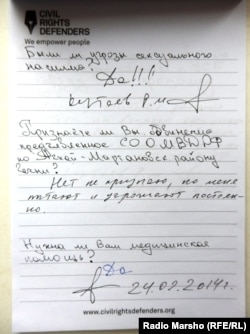 CIVIL
RIGHTS
DEFENDERS
We empower people
Были ли угрозы сексуального
насилия?
Да!!!
Кутаев Р.М
Признаёте ли Вы обвинение
предъявленное СО ОМВД РФ
по Ачхой-Мартановск. району
вины?
Нет не признаю, но меня
пытают и угрожают постоян-
но.
Нужна ли Вам медицинская
помощь?
Да
24.02.2014г.
www.civilrightsdefenders.org
Radio Marsho (RFE/RL)